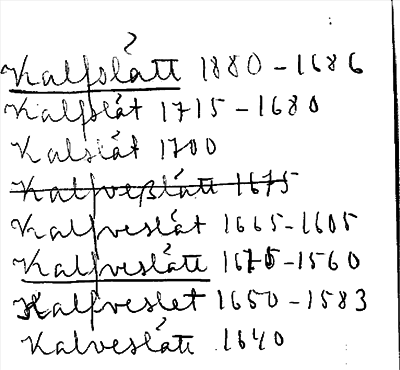 Kalfslått 1880-1686
Kalfslåt 1715-1680
Kalslåt 1700
Kalfveßlått 1675
Kalfveslåt 1665-1605
Kalfveslått 1615-1560
Kalfveslet 1650-1583
Kalveslått 1640